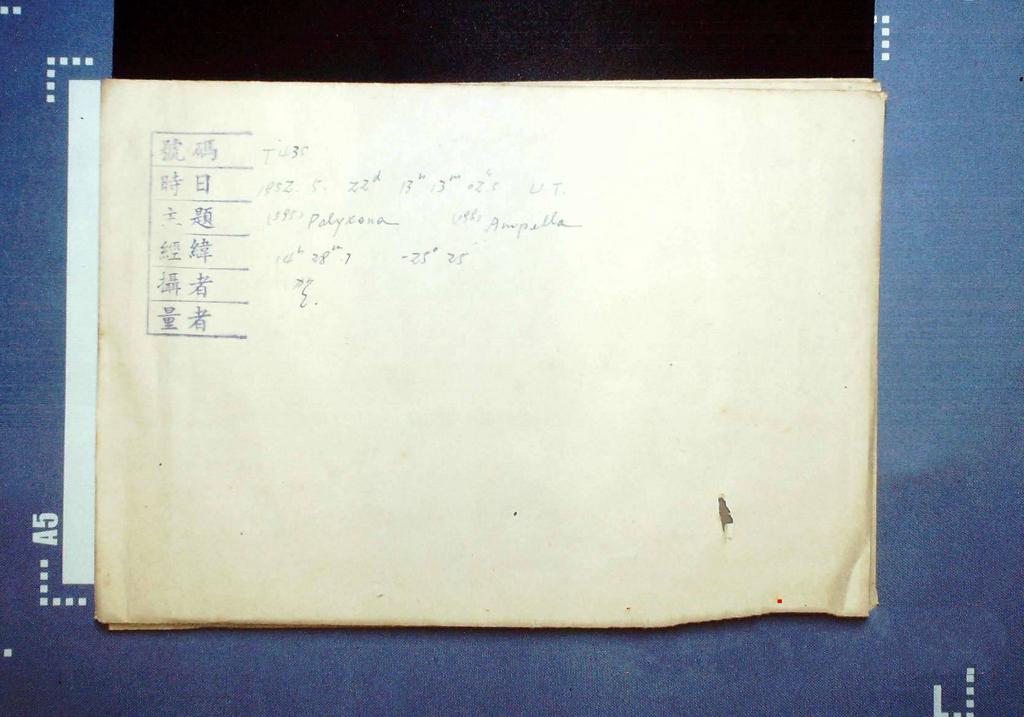 號碼 T435
時日 1952. 5. 22ᵈ 13ʰ 13ᵐ 02ˢ.5 U T.
主題 (595) Polyxena (198) Ampella
經緯 14ʰ 28ᵐ.7 -25° 25′
攝者
量者
A5